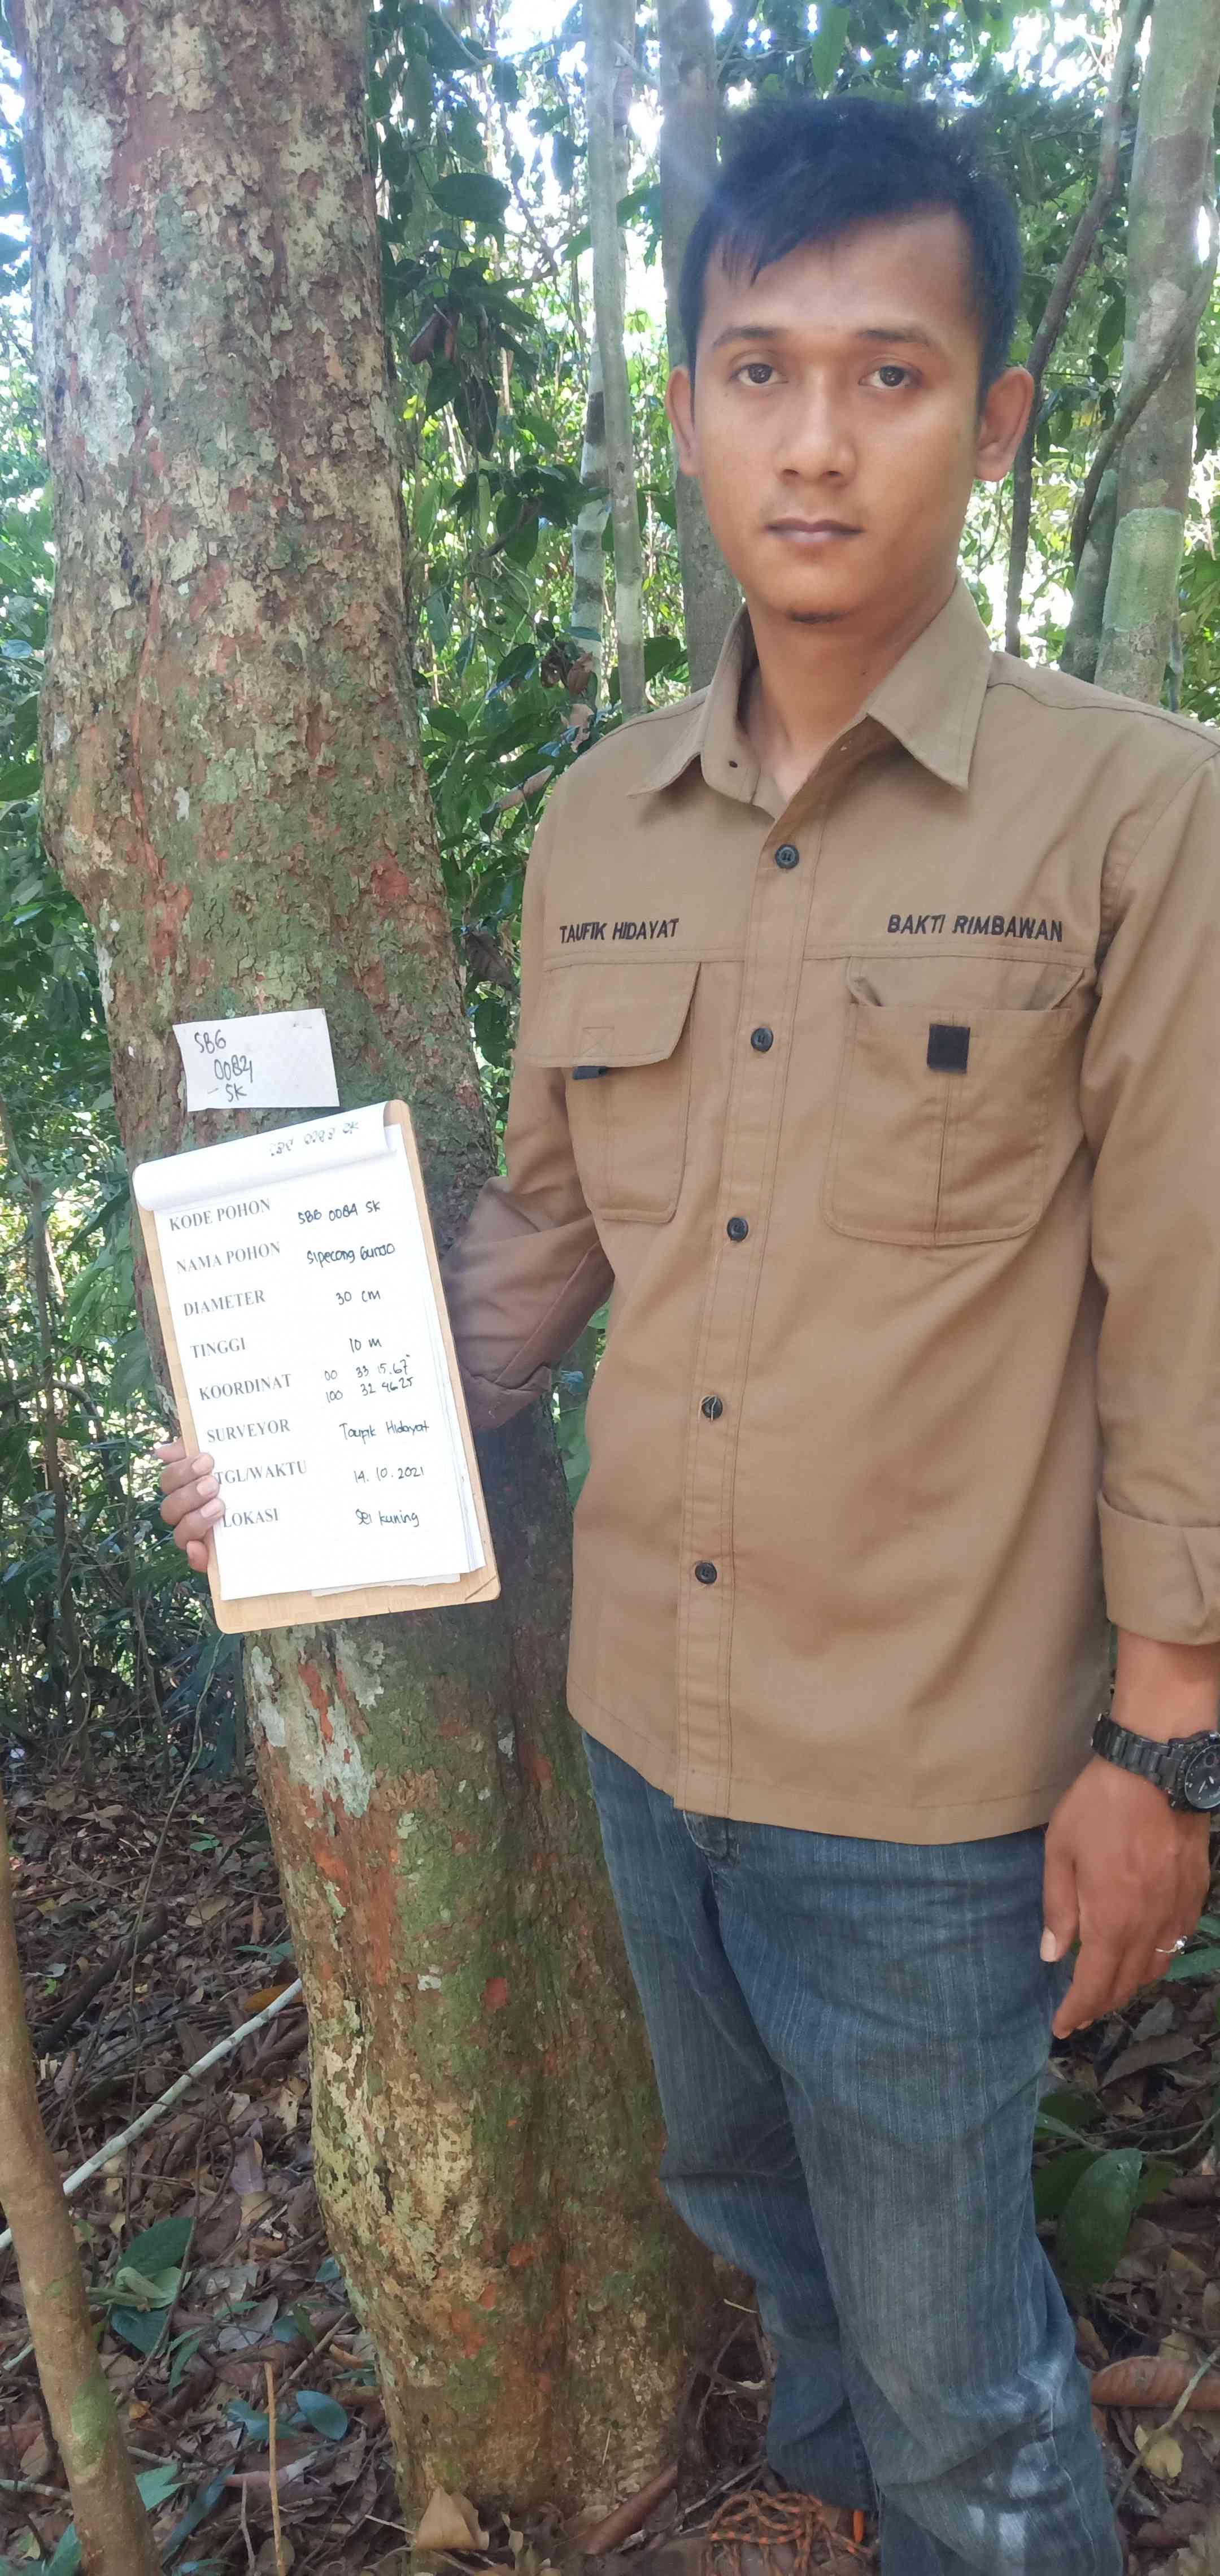 TAUFIK HIDAYAT
BAKTI RIMBAWAN
SBG
0084
SK
KODE POHON SBG 0084 SK
NAMA POHON Sipecong Gunjo
DIAMETER 30 cm
TINGGI 10 m
KOORDINAT 00 33 15.67"
100 32 46.25
SURVEYOR Taufik Hidayat
TGL/WAKTU 14.10.2021
LOKASI Sei kuning